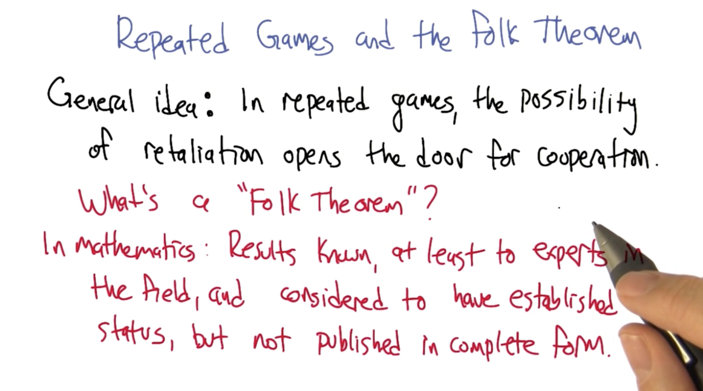 Repeated Games and the Folk Theorem
General idea: In repeated games, the possibility
of retaliation opens the door for cooperation.
What's a "Folk Theorem"?
In mathematics: Results known, at least to experts in
the field, and considered to have established
status, but not published in complete form.